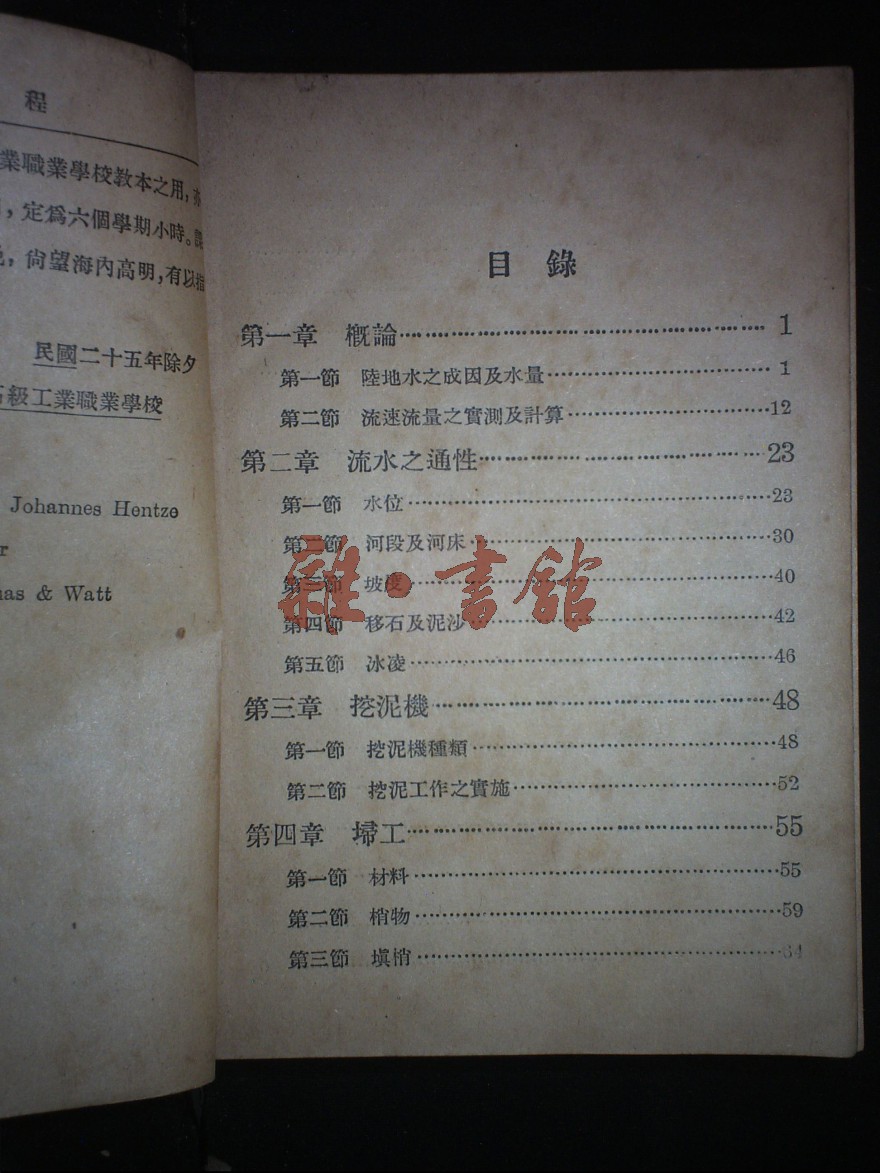 程
業職業學校教本之用,亦
,定爲六個學期小時。
,尙望海內高明,有以指
民國二十五年除夕
高級工業職業學校
Johannes Hentze
& Watt
目錄
第一章 概論 1
第一節 陸地水之成因及水量 1
第二節 流速流量之實測及計算 12
第二章 流水之通性 23
第一節 水位 23
第二節 河段及河床 30
第三節 坡度 40
第四節 移石及泥沙 42
第五節 冰凌 46
第三章 挖泥機 48
第一節 挖泥機種類 48
第二節 挖泥工作之實施 52
第四章 埽工 55
第一節 材料 55
第二節 梢物 59
第三節 塡梢 64
雜·書館